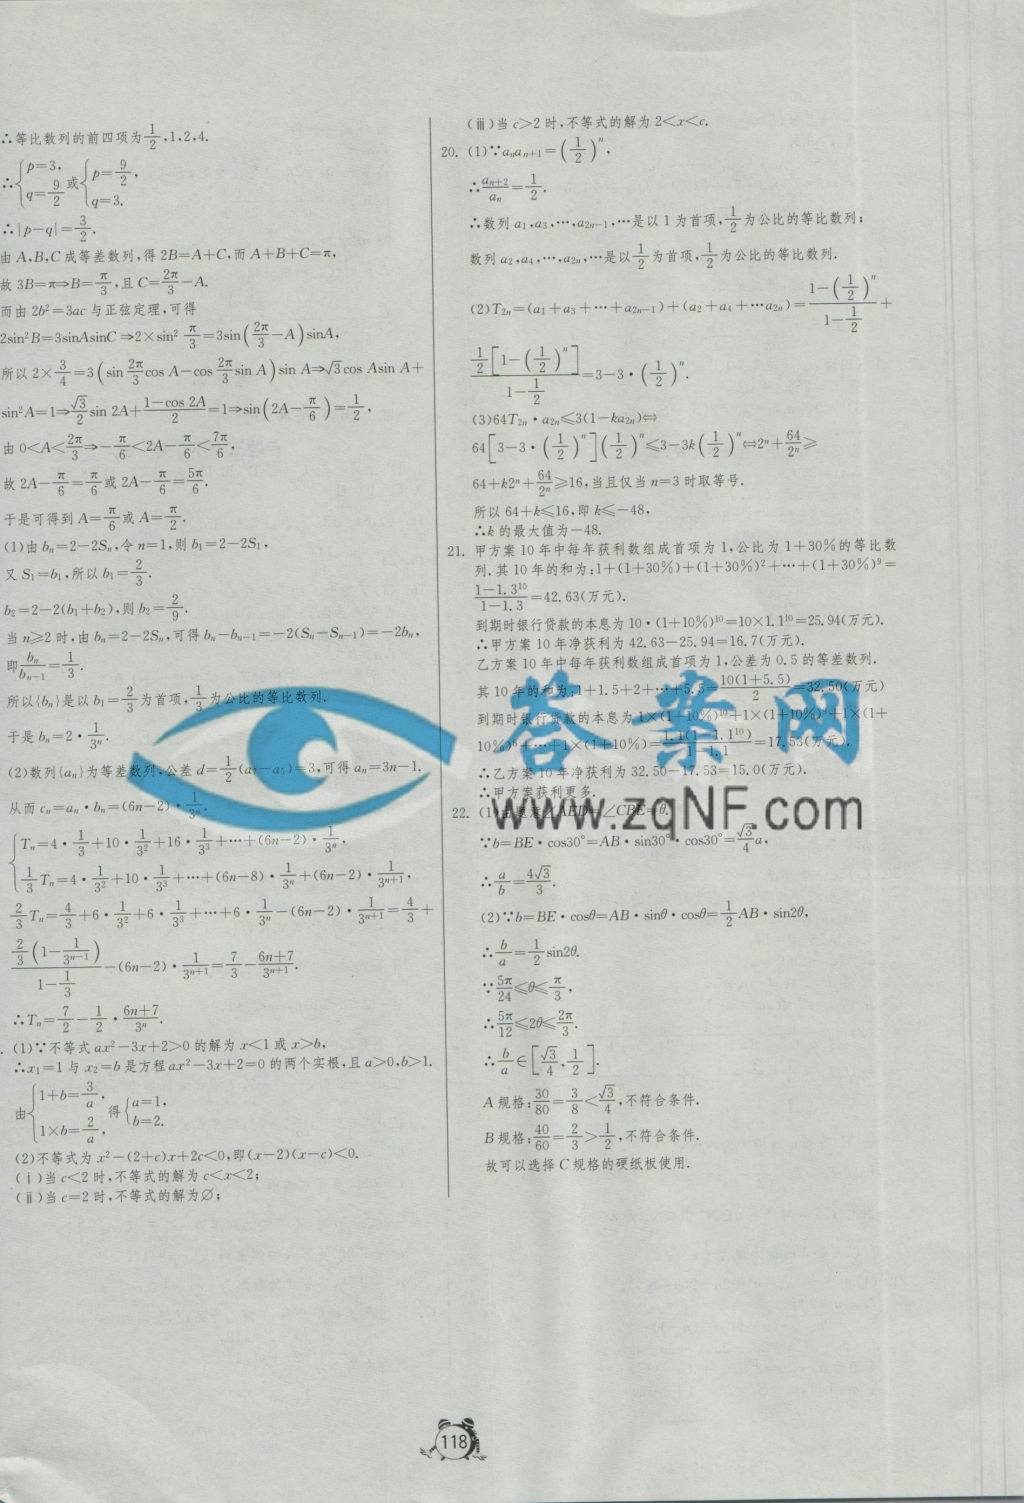 ∴等比数列的前四项为1/2,1,2,4.
∴{p=3, q=9/2 或{p=9/2, q=3.
∴|p-q|=3/2.
由 A,B,C 成等差数列,得 2B=A+C,而 A+B+C=π,
故 3B=π⇒B=π/3,且 C=2π/3-A.
而由 2b²=3ac 与正弦定理,可得
2sin²B=3sinAsinC⇒2×sin² π/3=3sin(2π/3-A)sinA,
所以 2×3/4=3(sin 2π/3 cos A-cos 2π/3 sin A)sin A⇒√3cos Asin A+
sin²A=1⇒√3/2 sin 2A+(1-cos 2A)/2=1⇒sin(2A-π/6)=1/2,
由 0<A<2π/3⇒-π/6<2A-π/6<7π/6,
故 2A-π/6=π/6或 2A-π/6=5π/6.
于是可得到 A=π/6或 A=π/2.
(1)由 bₙ=2-2Sₙ,令 n=1,则 b₁=2-2S₁,
又 S₁=b₁,所以 b₁=2/3.
b₂=2-2(b₁+b₂),则 b₂=2/9.
当 n≥2 时,由 bₙ=2-2Sₙ,可得 bₙ-bₙ₋₁=-2(Sₙ-Sₙ₋₁)=-2bₙ,
即bₙ/bₙ₋₁=1/3.
所以{bₙ}是以 b₁=2/3为首项,1/3为公比的等比数列.
于是 bₙ=2·1/3ⁿ.
(2)数列{aₙ}为等差数列,公差 d=1/2(a₇-a₅)=3,可得 aₙ=3n-1.
从而 cₙ=aₙ·bₙ=(6n-2)·1/3ⁿ.
{Tₙ=4·1/3+10·1/3²+16·1/3³+…+(6n-2)·1/3ⁿ,
1/3 Tₙ=4·1/3²+10·1/3³+…+(6n-8)·1/3ⁿ+(6n-2)·1/3ⁿ⁺¹,
2/3 Tₙ=4/3+6·1/3²+6·1/3³+…+6·1/3ⁿ-(6n-2)·1/3ⁿ⁺¹=4/3+
(2/3(1-1/3ⁿ⁻¹))/(1-1/3)-(6n-2)·1/3ⁿ⁺¹=7/3-(6n+7)/3ⁿ⁺¹.
∴Tₙ=7/2-1/2·(6n+7)/3ⁿ.
. (1)∵不等式 ax²-3x+2>0 的解为 x<1 或 x>b,
∴x₁=1 与 x₂=b 是方程 ax²-3x+2=0 的两个实根,且 a>0,b>1.
由{1+b=3/a, 1×b=2/a 得{a=1, b=2.
(2)不等式为 x²-(2+c)x+2c<0,即(x-2)(x-c)<0.
(ⅰ)当 c<2 时,不等式的解为 c<x<2;
(ⅱ)当 c=2 时,不等式的解为∅;
(ⅲ)当 c>2 时,不等式的解为 2<x<c.
20. (1)∵aₙaₙ₊₁=(1/2)ⁿ,
∴aₙ₊₂/aₙ=1/2.
∴数列 a₁,a₃,…,a₂ₙ₋₁,…是以 1 为首项,1/2为公比的等比数列;
数列 a₂,a₄,…,a₂ₙ,…是以1/2为首项,1/2为公比的等比数列.
(2)T₂ₙ=(a₁+a₃+…+a₂ₙ₋₁)+(a₂+a₄+…a₂ₙ)=(1-(1/2)ⁿ)/(1-1/2)+
(1/2[1-(1/2)ⁿ])/(1-1/2)=3-3·(1/2)ⁿ.
(3)64T₂ₙ·a₂ₙ≤3(1-ka₂ₙ)⇔
64[3-3·(1/2)ⁿ](1/2)ⁿ≤3-3k(1/2)ⁿ⇔2ⁿ+64/2ⁿ≥
64+k2ⁿ+64/2ⁿ≥16,当且仅当 n=3 时取等号.
所以 64+k≤16,即 k≤-48,
∴k 的最大值为-48.
21. 甲方案 10 年中每年获利数组成首项为 1,公比为 1+30%的等比数
列.其 10 年的和为:1+(1+30%)+(1+30%)²+…+(1+30%)⁹=
(1-1.3¹⁰)/(1-1.3)=42.63(万元).
到期时银行贷款的本息为 10·(1+10%)¹⁰=10×1.1¹⁰=25.94(万元).
∴甲方案 10 年净获利为 42.63-25.94=16.7(万元).
乙方案 10 年中每年获利数组成首项为 1,公差为 0.5 的等差数列.
其 10 年的和为:1+1.5+2+…+5.5=10(1+5.5)/2=32.50(万元)
到期时银行贷款的本息为 1×(1+10%)¹⁰+1×(1+10%)⁹+1×(1+
10%)⁸+…+1×(1+10%)=1.1(1-1.1¹⁰)/1-1.1=17.53(万元).
∴乙方案 10 年净获利为 32.50-17.53=15.0(万元).
∴甲方案获利更多.
22. (1)由题意∠AED=∠CBE=θ.
∵b=BE·cos30°=AB·sin30°·cos30°=√3/4 a,
∴a/b=4√3/3.
(2)∵b=BE·cosθ=AB·sinθ·cosθ=1/2AB·sin2θ,
∴b/a=1/2 sin2θ.
∵5π/24≤θ≤π/3,
∴5π/12≤2θ≤2π/3.
∴b/a∈[√3/4,1/2].
A 规格:30/80=3/8<√3/4,不符合条件.
B 规格:40/60=2/3>1/2,不符合条件.
故可以选择 C 规格的硬纸板使用.
答案网
www.zqNF.com
118